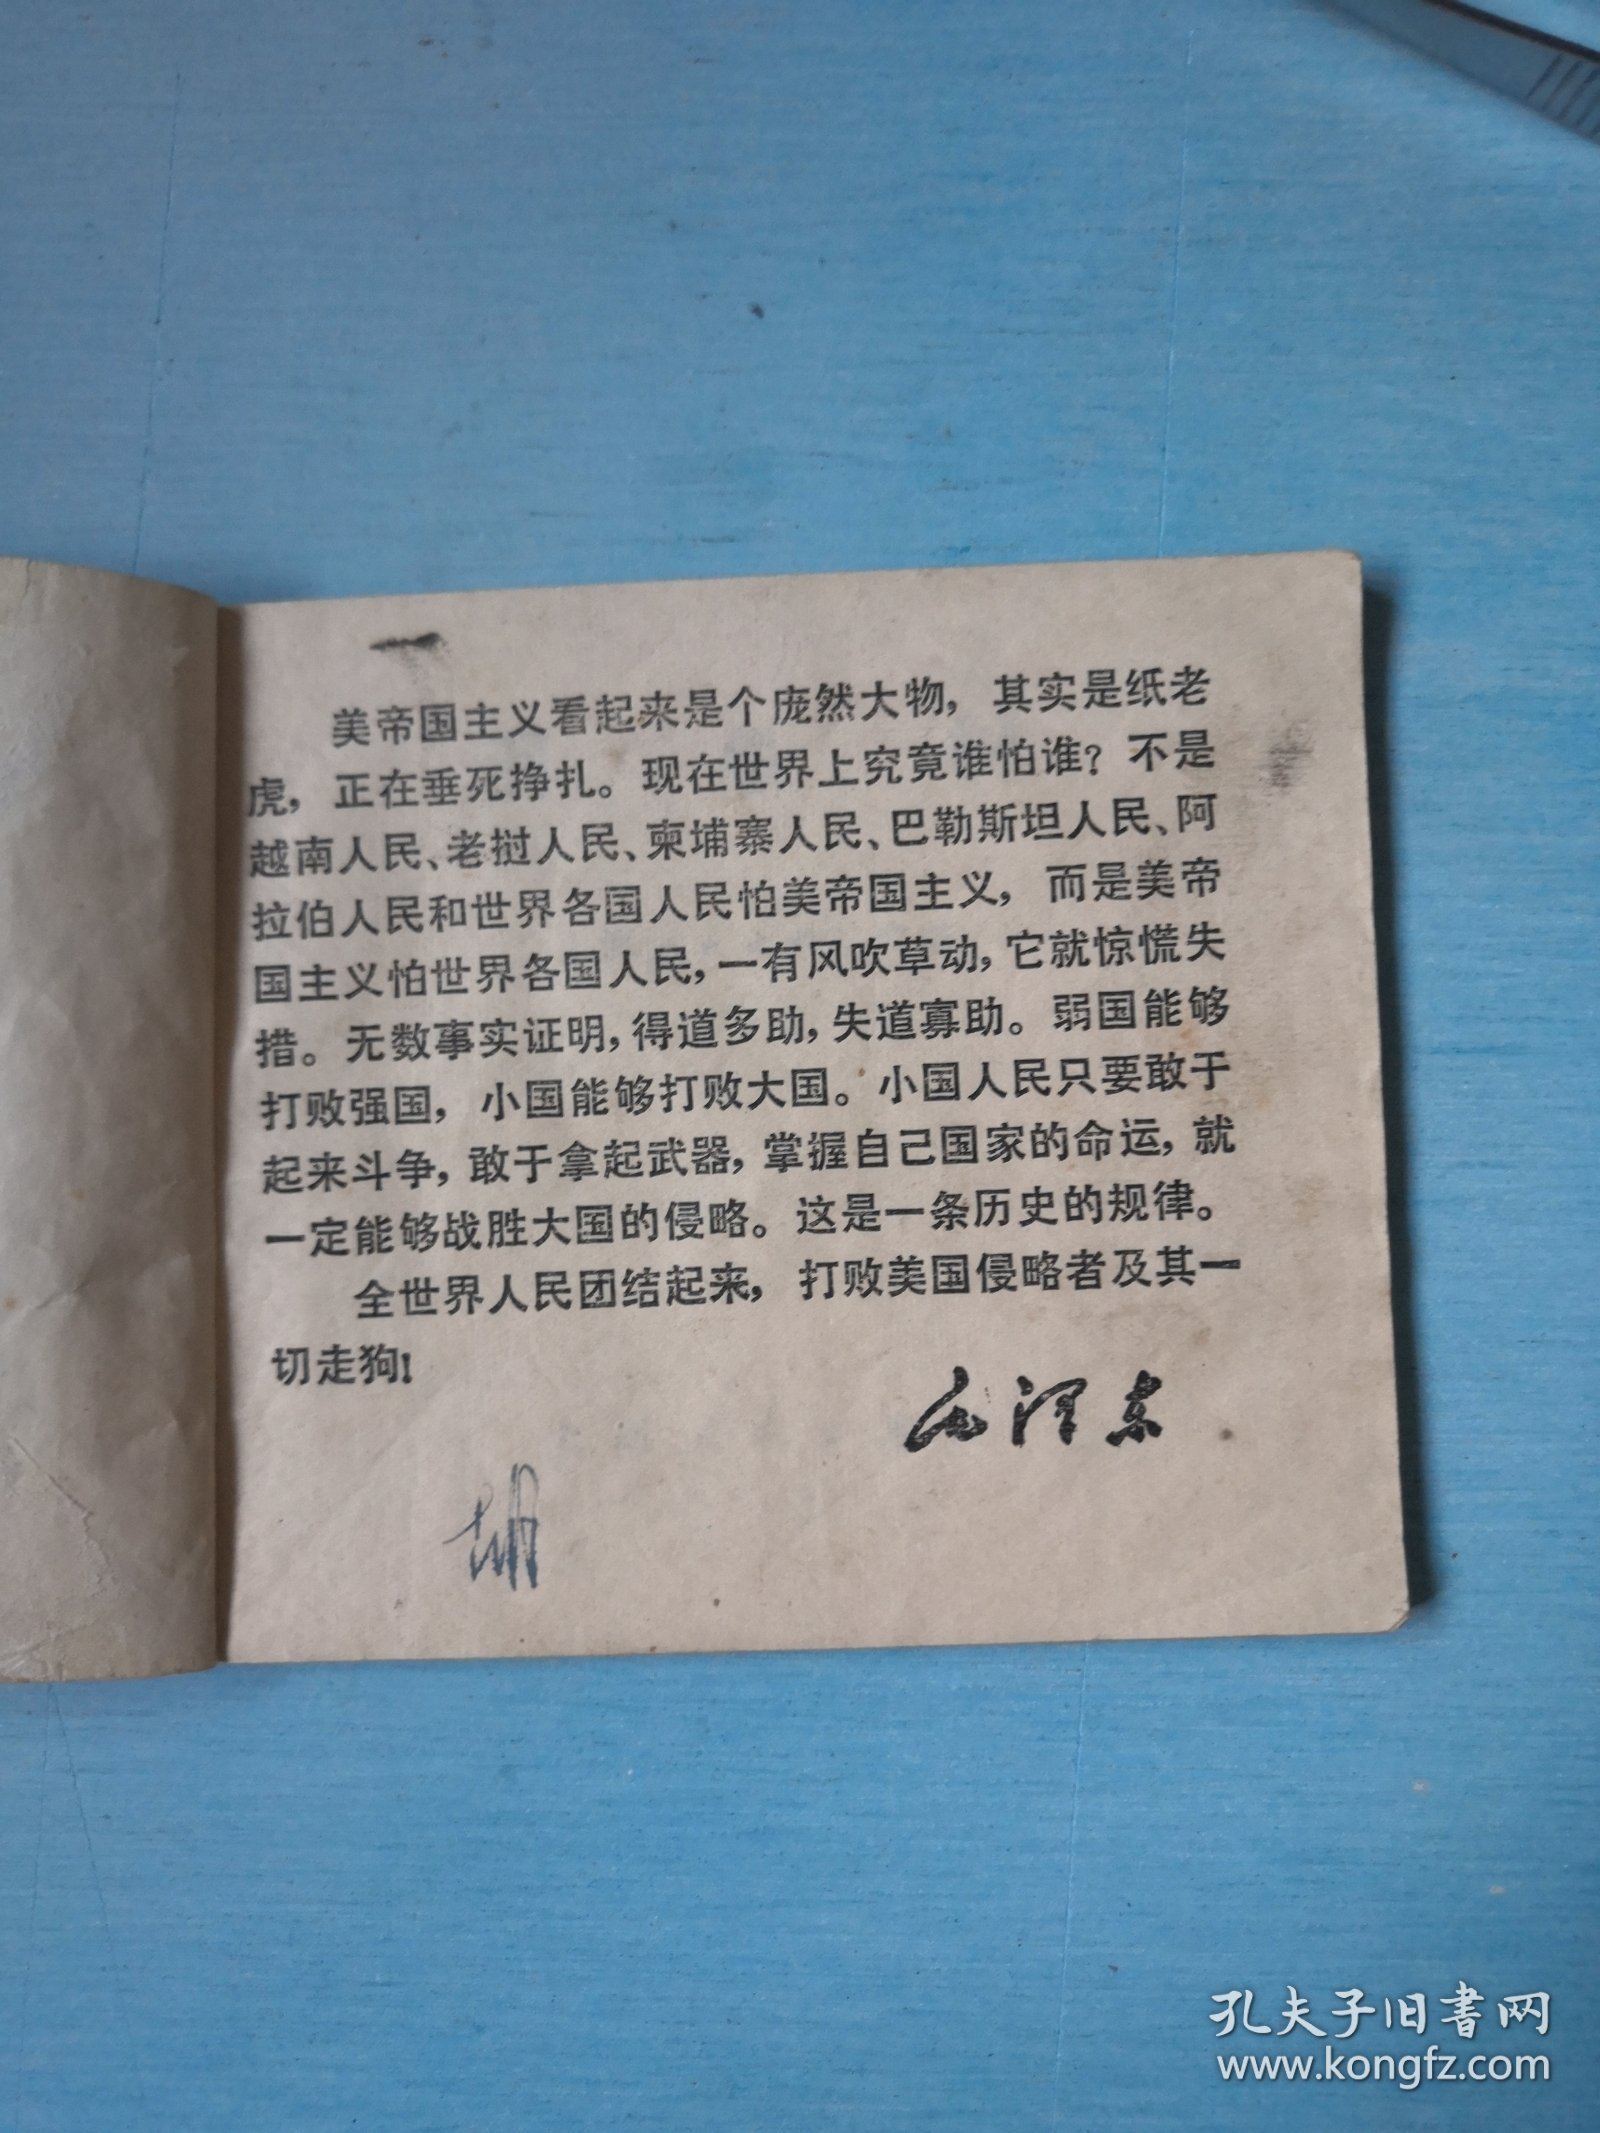 美帝国主义看起来是个庞然大物，其实是纸老
虎，正在垂死挣扎。现在世界上究竟谁怕谁？不是
越南人民、老挝人民、柬埔寨人民、巴勒斯坦人民、阿
拉伯人民和世界各国人民怕美帝国主义，而是美帝
国主义怕世界各国人民，一有风吹草动，它就惊慌失
措。无数事实证明，得道多助，失道寡助。弱国能够
打败强国，小国能够打败大国。小国人民只要敢于
起来斗争，敢于拿起武器，掌握自己国家的命运，就
一定能够战胜大国的侵略。这是一条历史的规律。
全世界人民团结起来，打败美国侵略者及其一
切走狗！
毛泽东
孔夫子旧书网
www.kongfz.com